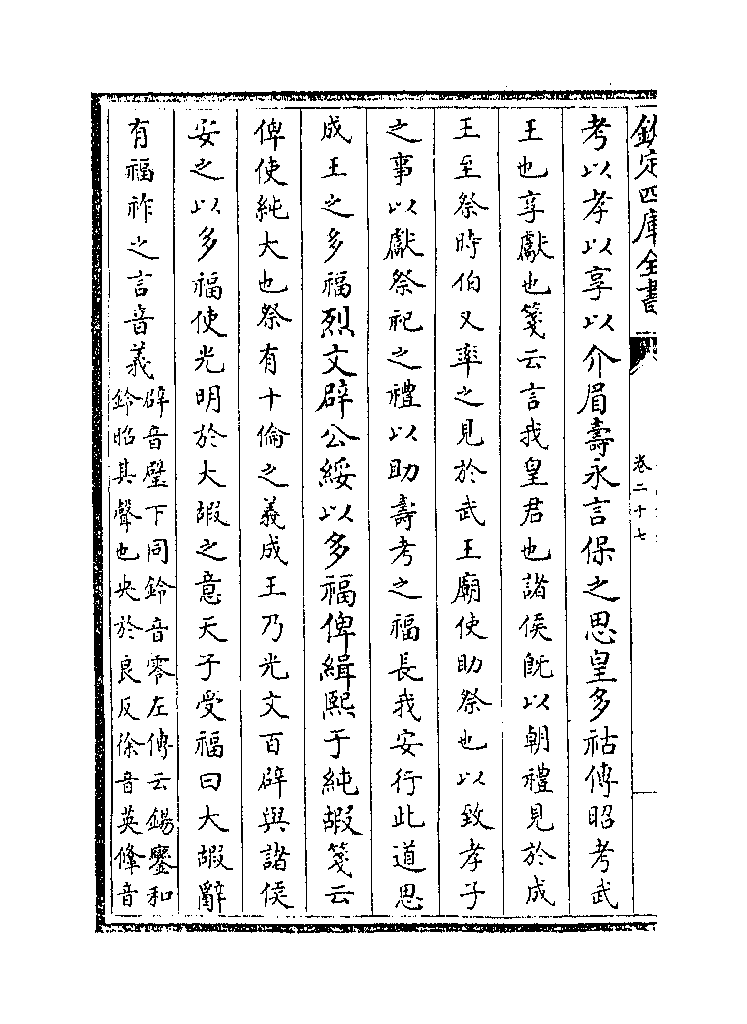 欽定四庫全書
卷二十七
考以孝以享以介眉壽永言保之思皇多祜傳昭考武
王也享獻也箋云言我皇君也諸侯既以朝禮見於成
王至祭時伯又率之見於武王廟使助祭也以致孝子
之事以獻祭祀之禮以助壽考之福長我安行此道思
成王之多福烈文辟公綏以多福俾緝熙于純嘏箋云
俾使純大也祭有十倫之義成王乃光文百辟與諸侯
安之以多福使光明於大嘏之意天子受福曰大嘏辭
有福祚之言音義
辟音璧下同鈴音零左傳云鍚鑾和
鈴昭其聲也央於良反徐音英鞗音